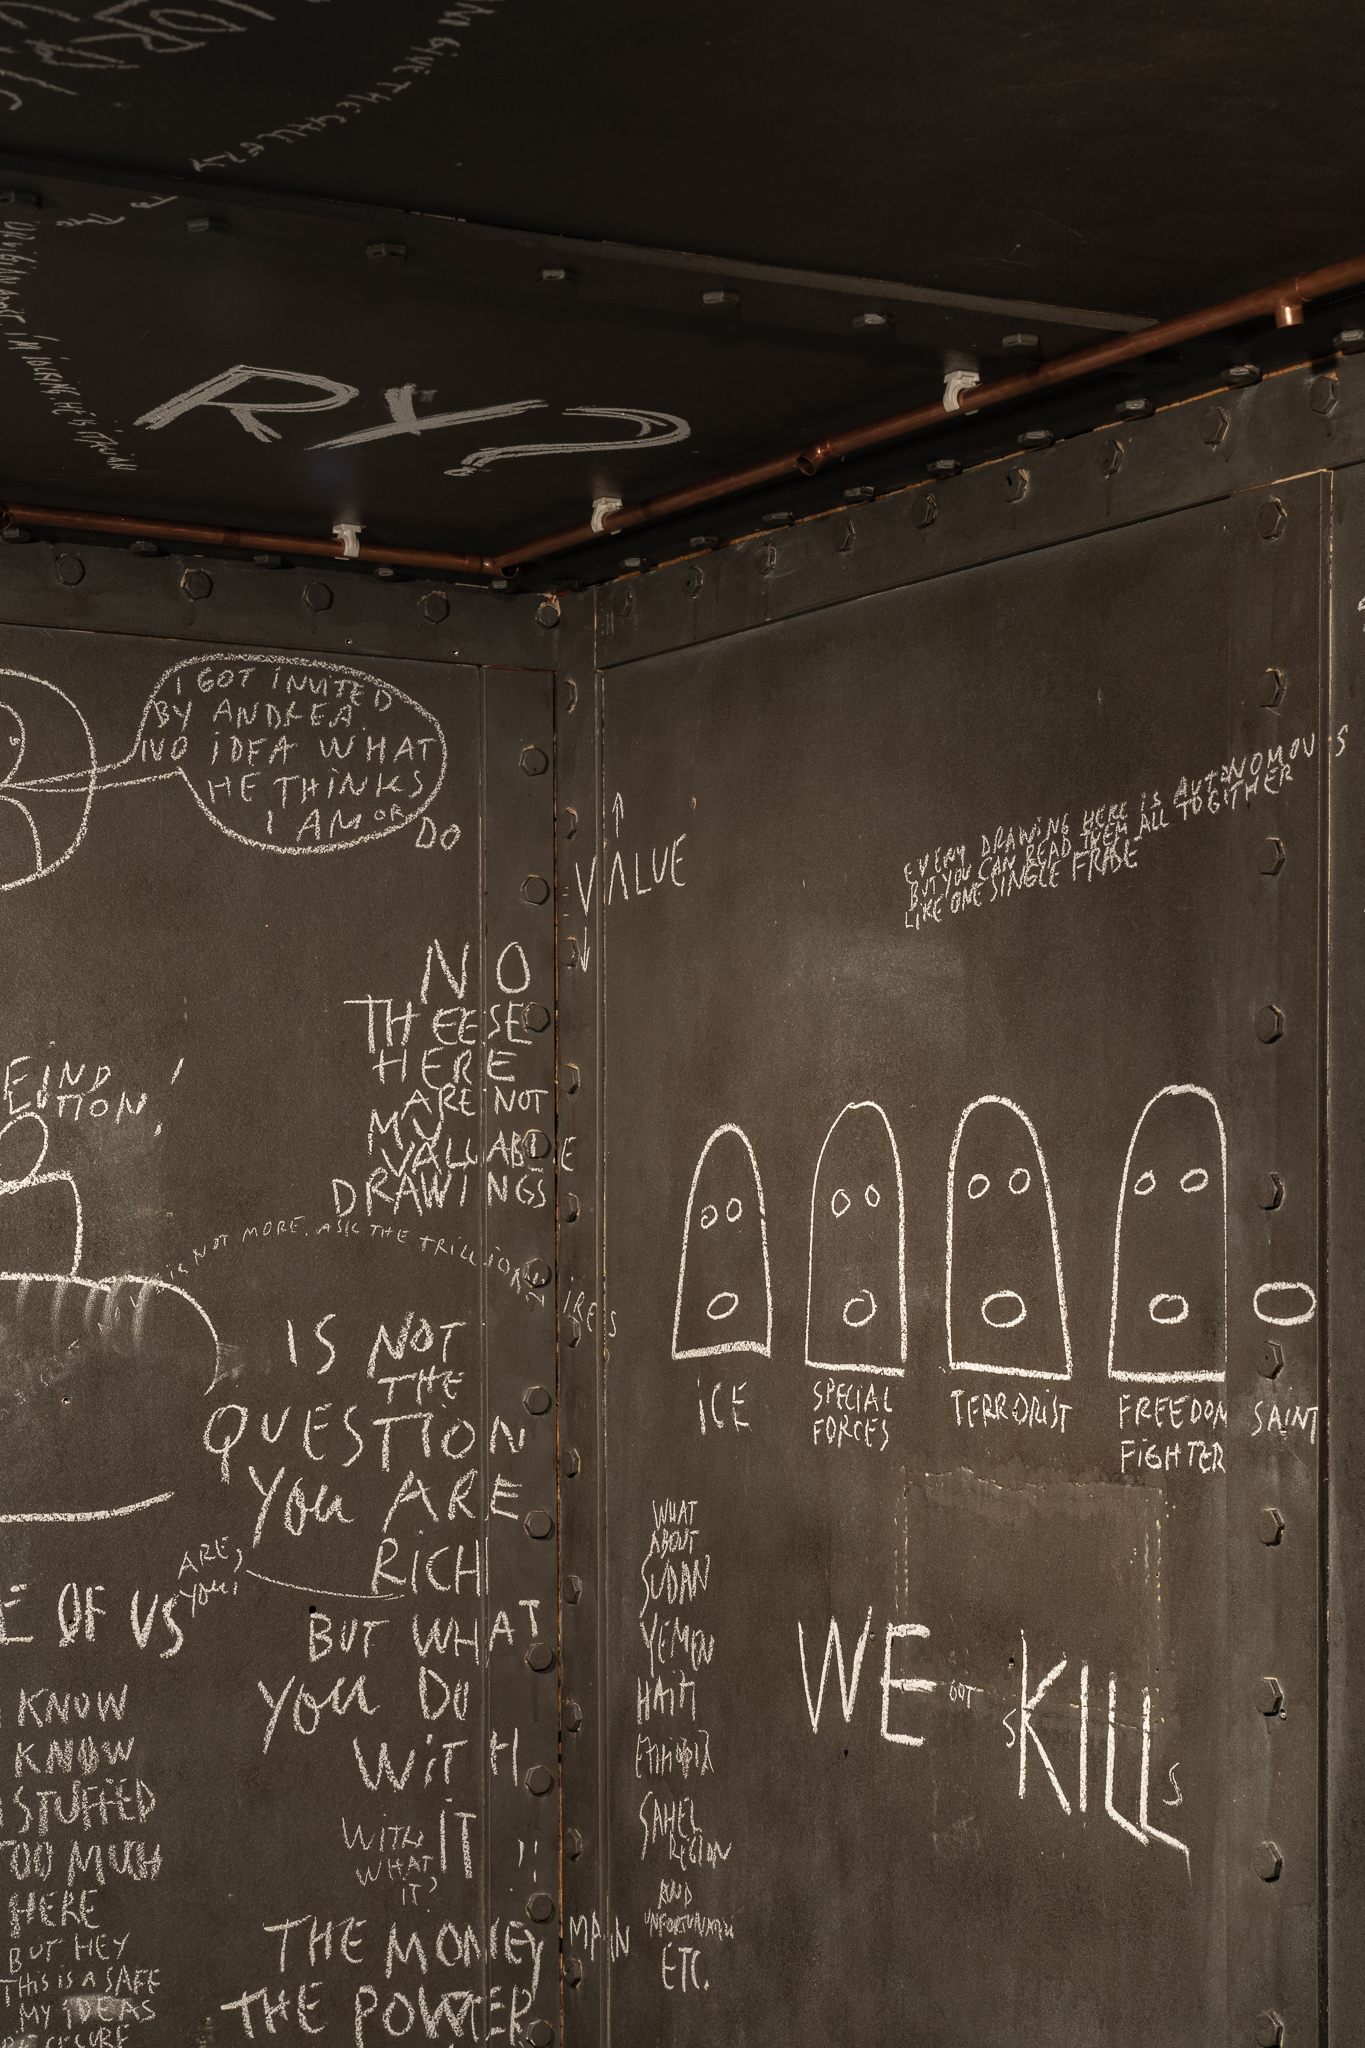 RY?
I GOT INVITED
BY ANDREA.
NO IDEA WHAT
HE THINKS
I AM OR DO
VALUE
NO
THEESE
HERE
ARE NOT
MY
VALUABLE
DRAWINGS
IS NOT MORE. ASK THE TRILLIONAIRES
IS NOT
THE
QUESTION
YOU ARE
RICH
ARE
YOU?
BUT WHAT
YOU DO
WITH
IT
WITH
WHAT
IT?
THE MONEY MAIN
THE POWER
OF US
KNOW
KNOW
STUFFED
TOO MUCH
HERE
BUT HEY
THIS IS A SAFE
MY IDEAS
EVERY DRAWING HERE IS AUTONOMOUS
BUT YOU CAN READ THEM ALL TOGETHER
LIKE ONE SINGLE FRIDE
ICE
SPECIAL
FORCES
TERRORIST
FREEDOM
FIGHTER
SAINT
WHAT
ABOUT
SUDAN
YEMEN
HAITI
ETHIOPIA
SAHEL
REGION
AND
UNFORTUNATELY
ETC.
WE GOT SKILLS